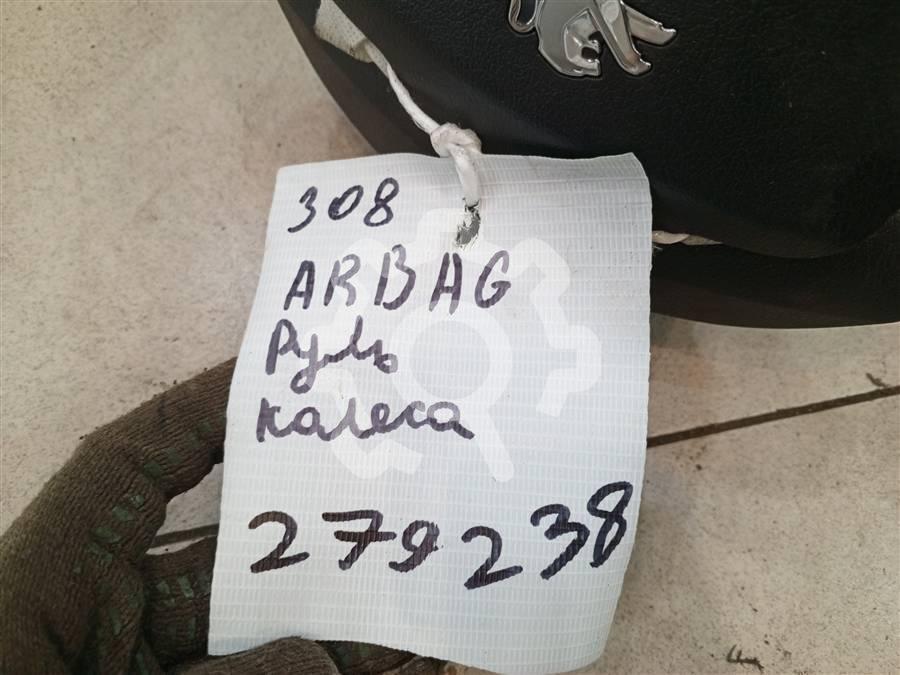 308
ARBAG
Руль
калеса
279238